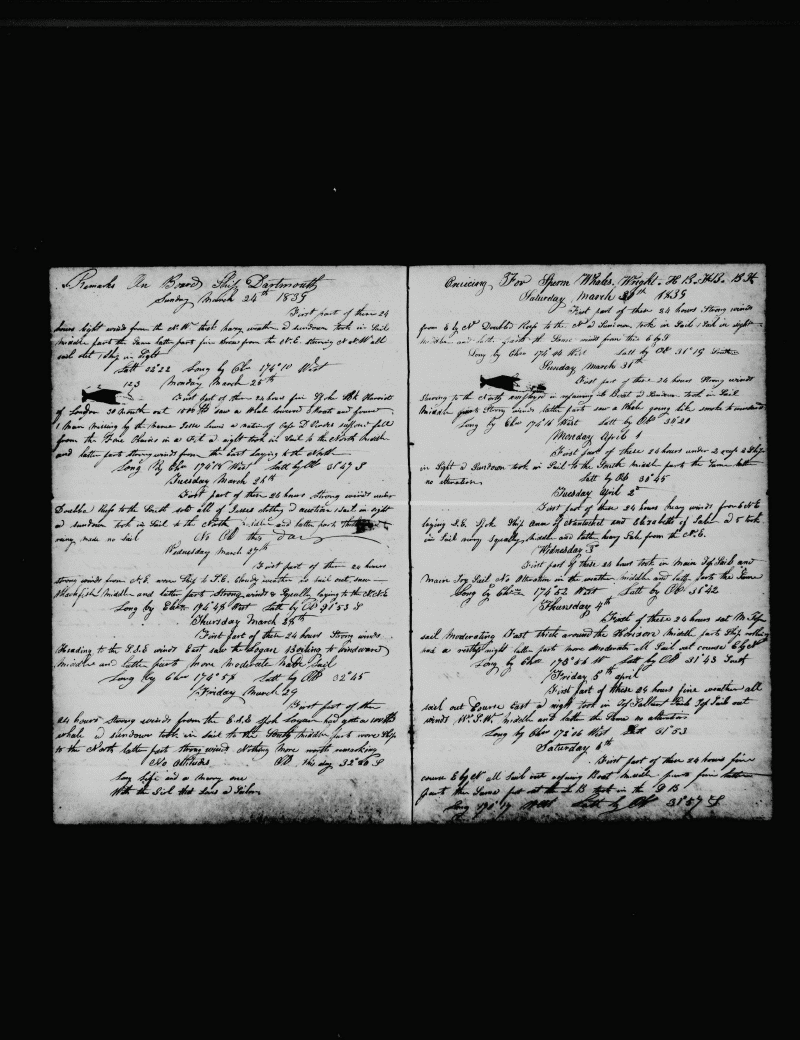 Remarks On Board Ship Dartmouth
Sunday March 24th 1839
First part of these 24
hours light winds from the N.W. thick heavy weather sundown took in Sail
middle part the Same latter part fine from the N.E. steering N.N.W all
sail out 1 Ship in Sight
Latt 32 22 Long by Chr 174° 10 West
123 Monday March 25th
First part of these 24 hours fine Spoke Ship
of London 30 Month out 1800 Saw a Whale lowered Boats and found
1 Man Missing by the name Isaac a native of Cape D Verds suppose fell
from the Fore Chains in a Fit at night took in Sail to the North middle
and latter parts strong winds from the East laying to the North
Long By Chr 174° 14 West Latt by Ob 31° 47 S
Tuesday March 26th
First part of these 24 hours strong winds under
Double Reefs to the South sold all of Isaacs clothing at auction 1 Sail in sight
at sundown took in Sail to the North middle and latter parts
made no Sail No Ob this Day
Wednesday March 27th
First part of these 24 hours
strong winds from N.E. wore Ship to S.E. Cloudy weather no Sail out, saw
Blackfish middle and latter parts Strong winds & Squally laying to the
Long by Chr West Latt by Ob 31° 53 S
Thursday March 28th
First part of these 24 hours Strong winds
Heading to the S.S.E winds East saw the Logan Boiling to windward
middle and latter parts more moderate made Sail
Long by Chr 175° 54 Latt by Ob 32° 45
Friday March 29
First part of the
24 hours strong winds from the E.S.E Spoke Logan had got a 100
whale at sundown took in sail to the South middle part wore Ship
to the North latter part strong winds Nothing More worth remarking
No Ob this day 32° 20 S
Long Life and a merry one
With the Girl that Loves a Sailor
Cruising For Sperm Whales.
Saturday March 30th 1839
First part of these 24 hours Strong winds
from E by N Double Reefs to the N at Sundown took in Sail 1 Sail in sight
middle and latter parts the Same winds from E by S
Long by Chr West Latt by Ob 31° 19 South
Sunday March 31st
First part of these 24 hours Strong winds
Steering to the North employed in repairing the Boat at Sundown took in Sail
Middle part Strong winds latter parts saw a Whale going like smoke to windward
Long by Chr 174° 16 West Latt by Ob
Monday April 1
First part of these 24 hours under 2 reefs 2 Ships
in Sight at Sundown took in Sail to the South middle parts the Same latter
no alteration Latt by Ob 30° 45
Tuesday April 2d
First part of these 24 hours heavy winds from E.N.E
laying S.E. Spoke Ship Ann of Nantucket and Elizabeth of Salem at 5 took
in Sail very Squally, middle and latter heavy Sea from the N.E.
Wednesday 3d
First part of these 24 hours took in Main Top Sail and
Main Try Sail No Alteration in the weather middle and latter parts the Same
Long by Chr 174° 52 West Latt by Ob 31° 42
Thursday 4th
First of these 24 hours set M Top
sail Moderating Fast thick around the Horizon Middle parts Ship rolling
had a rolly night latter part more Moderate all Sail out course E by N
Long by Chr 173° 56 W Latt by Ob 31° 43 South
Friday 5th April
First part of these 24 hours fine weather all
sail out Course East at night took in Top Gallant Sails Top Sails out
winds W.S.W. Middle and latter the Same no alteration
Long by Chr 172° 06 West Latt 31° 53
Saturday 6th
First part of these 24 hours fine
course E by N all Sail out repairing Boat Middle parts fine latter
part the Same put out the L B took in the S B
Long 170° 17 West Latt by Ob 31° 57 S